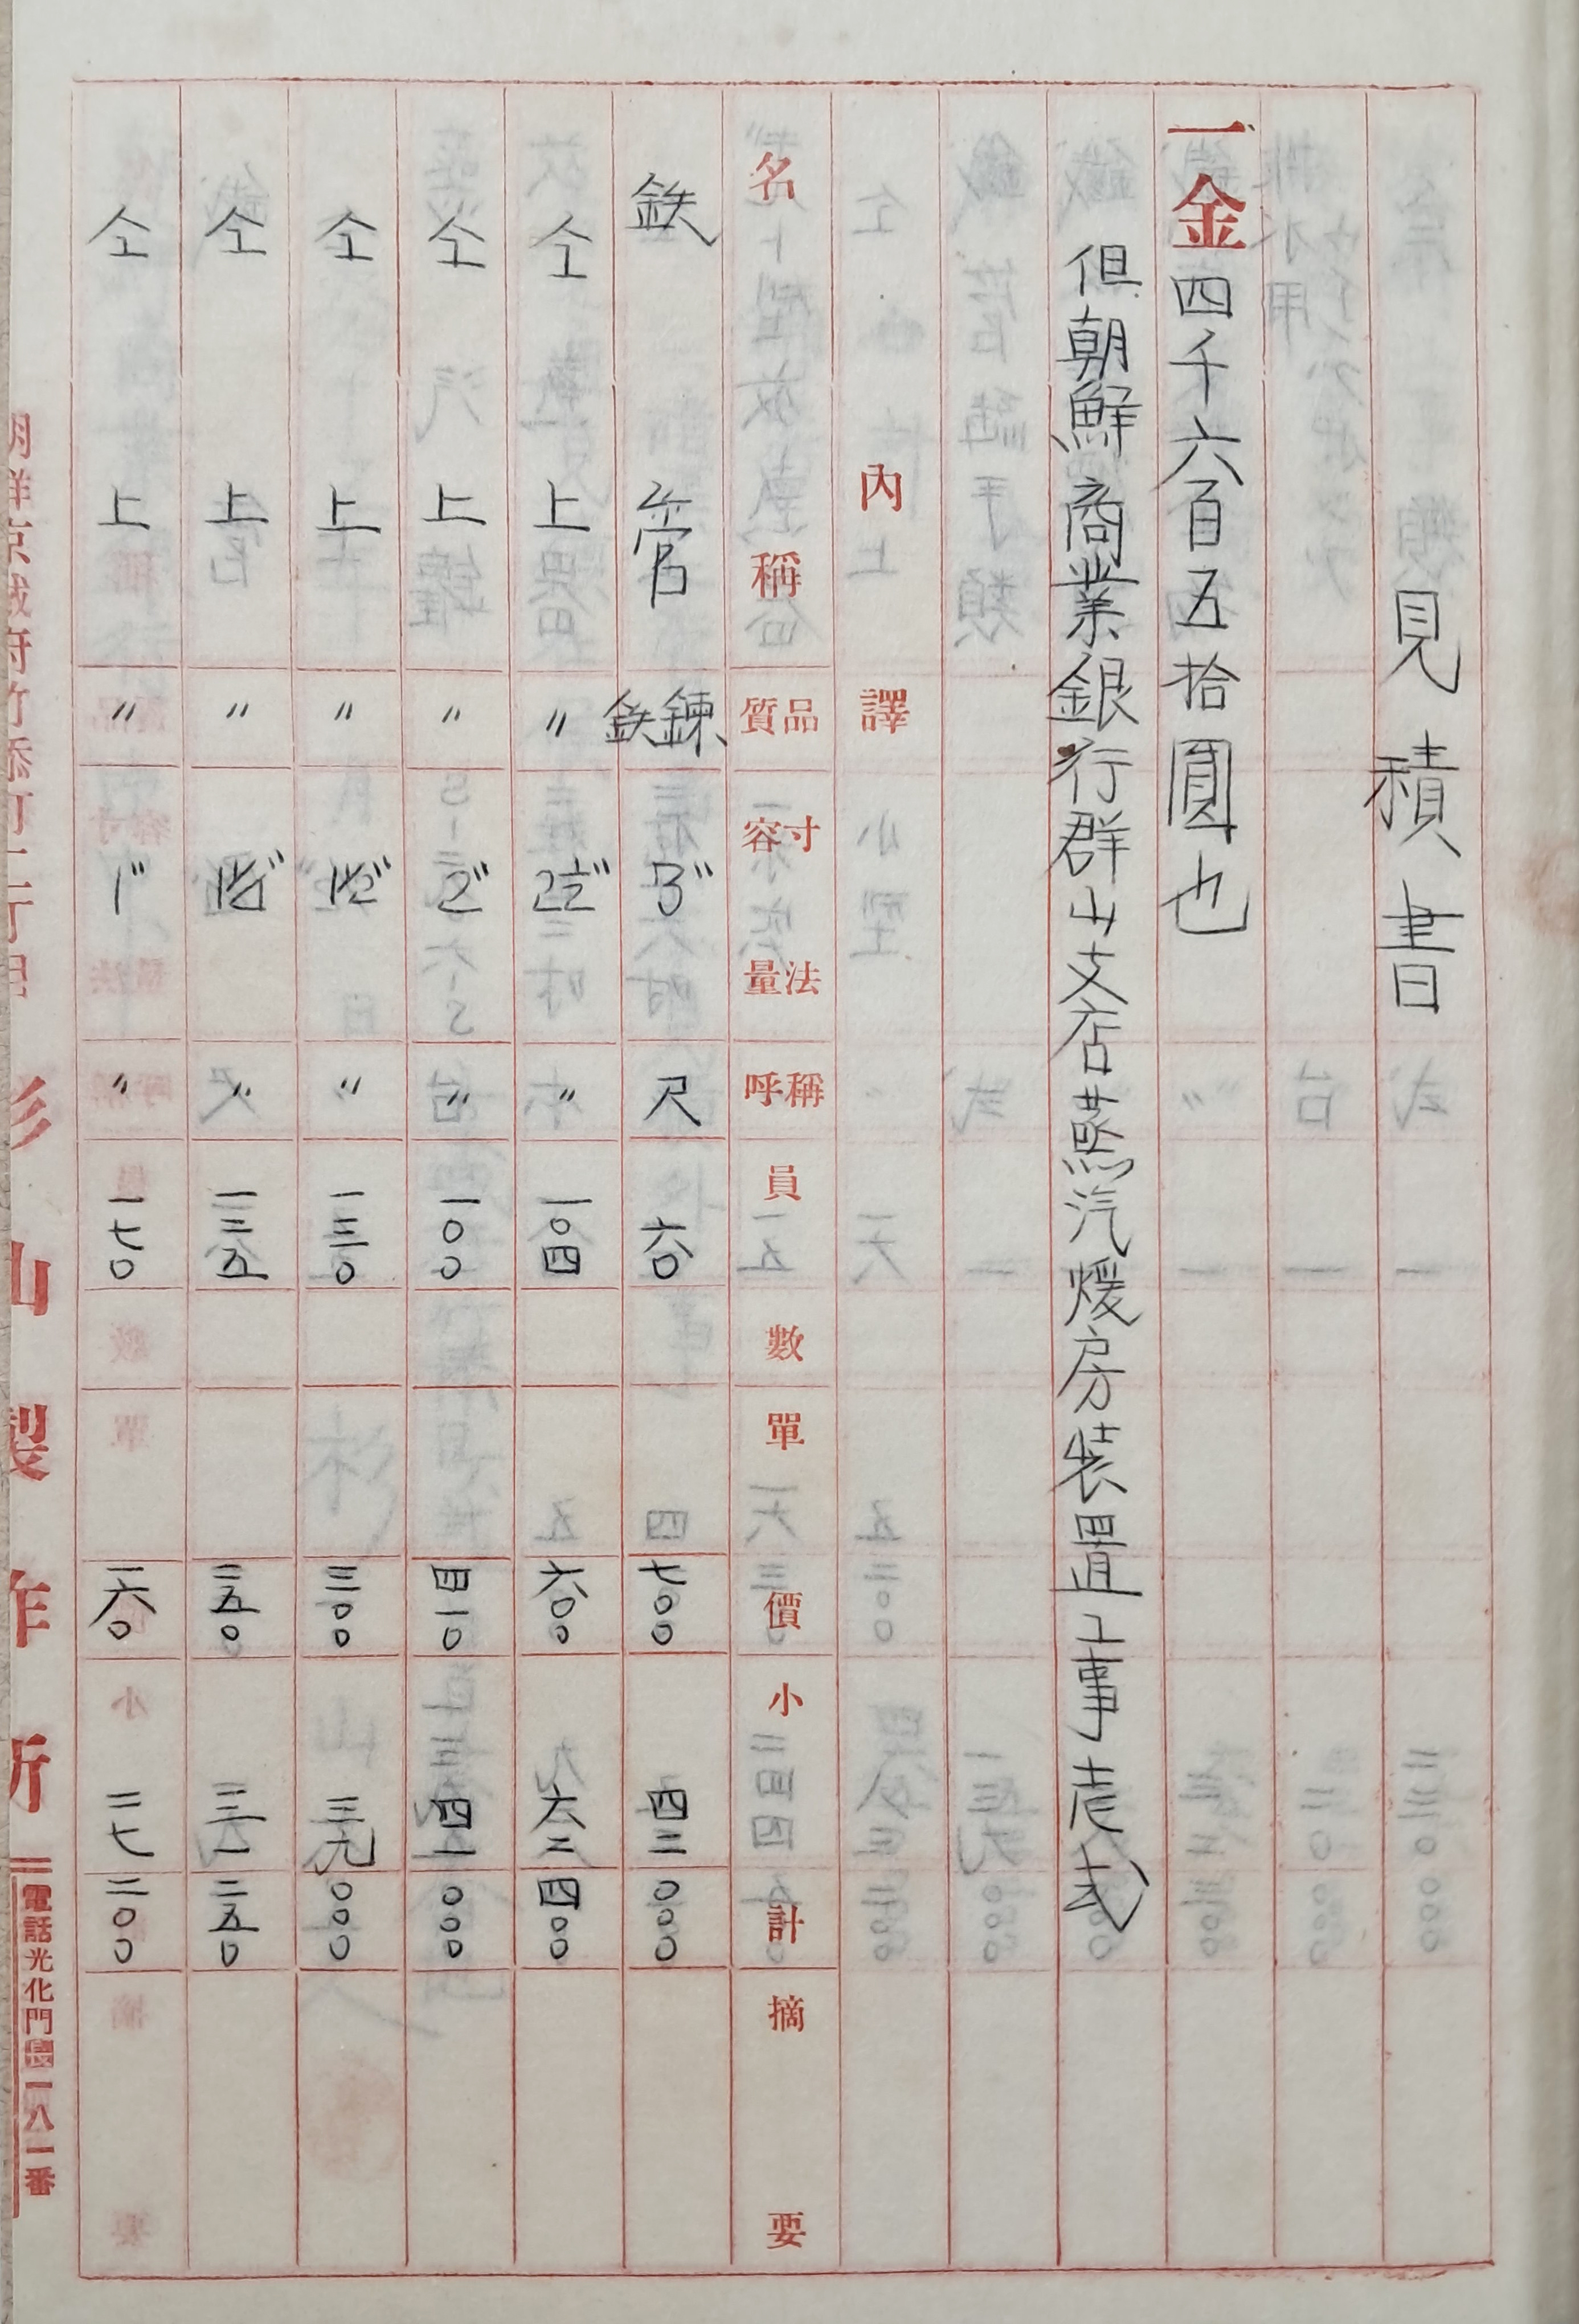 見積書
一金四千六百五拾圓也
但朝鮮商業銀行群山支店蒸汽煖房装置工事壱式
內譯
名稱 品質 寸法容量 稱呼 員數 單價 小計 摘要
鉄管 鍊鉄 3" 尺 六〇 七〇〇 四二〇〇〇
仝上 〃 2½" 〃 一〇四 六〇〇 六二四〇〇
仝上 〃 2" 〃 一〇〇 四一〇 四一〇〇〇
仝上 〃 1½" 〃 一三〇 三〇〇 三九〇〇〇
仝上 〃 1¼" 〃 一二五 二五〇 三一二五〇
仝上 〃 1" 〃 一七〇 一六〇 二七二〇〇
朝鮮京城府竹添町二丁目 杉山製作所 電話光化門一八一番